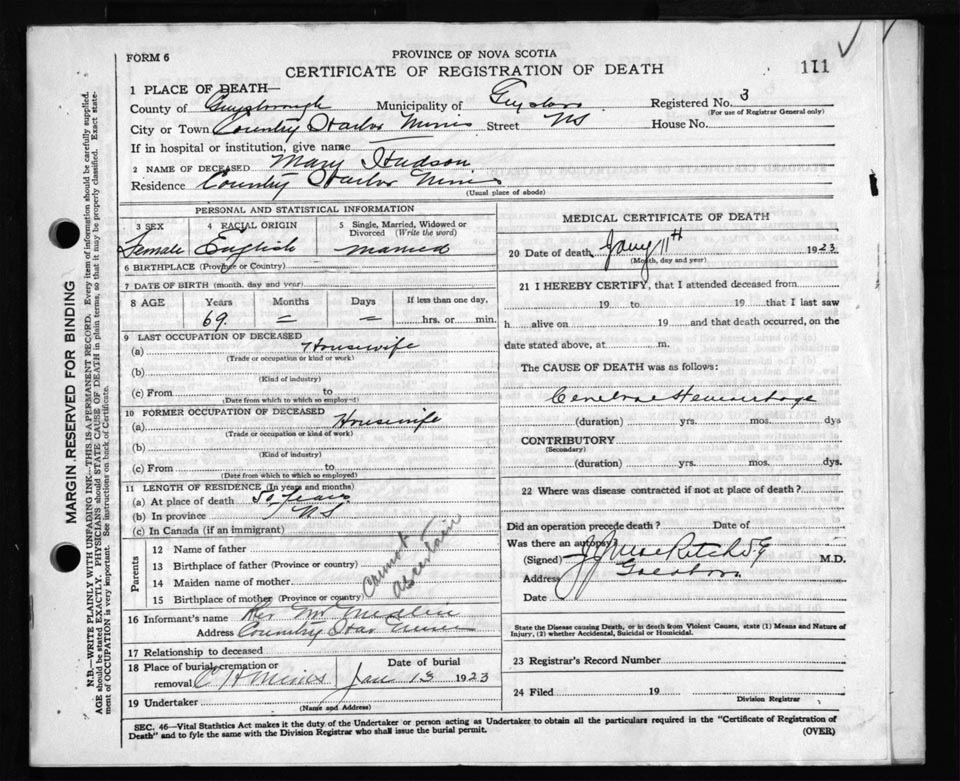 FORM 6
PROVINCE OF NOVA SCOTIA
CERTIFICATE OF REGISTRATION OF DEATH
111
1 PLACE OF DEATH—
County of Guysborough Municipality of Guysboro Registered No. 3
(For use of Registrar General only)
City or Town Country Harbor Mines Street NS House No.
If in hospital or institution, give name
2 NAME OF DECEASED Mary Hudson
Residence Country Harbor Mines
(Usual place of abode)
PERSONAL AND STATISTICAL INFORMATION
3 SEX 4 RACIAL ORIGIN 5 Single, Married, Widowed or Divorced (Write the word)
Female English Married
6 BIRTHPLACE (Province or Country)
7 DATE OF BIRTH (month, day and year)
8 AGE Years Months Days If less than one day,
69. = — hrs. or min.
9 LAST OCCUPATION OF DECEASED
(a) Housewife
(Trade or occupation or kind or work)
(b)
(Kind of industry)
(c) From to
(Date from which to which so employed)
10 FORMER OCCUPATION OF DECEASED
(a) Housewife
(Trade or occupation or kind of work)
(b)
(Kind of industry)
(c) From to
(Date from which to which so employed)
11 LENGTH OF RESIDENCE (In years and months)
(a) At place of death 50 years
(b) In province NS
(c) In Canada (if an immigrant)
Parents
12 Name of father
13 Birthplace of father (Province or country)
14 Maiden name of mother
15 Birthplace of mother (Province or country)
Cannot ascertain
16 Informant's name Rev Mr
Address Country Har Mines
17 Relationship to deceased
18 Place of burial, cremation or removal C H Mines Date of burial Jan 13 1923
19 Undertaker
(Name and Address)
MEDICAL CERTIFICATE OF DEATH
20 Date of death Jany 11th 1923
(Month, day and year)
21 I HEREBY CERTIFY, that I attended deceased from
19 to 19 that I last saw
h alive on 19 and that death occurred, on the
date stated above, at m.
The CAUSE OF DEATH was as follows:
Cerebral Hemorrhage
(duration) yrs. mos. dys
CONTRIBUTORY
(Secondary)
(duration) yrs. mos. dys.
22 Where was disease contracted if not at place of death?
Did an operation precede death? Date of
Was there an autopsy
(Signed) M.D.
Address Goldboro
Date
State the Disease causing Death, or in death from Violent Causes, state (1) Means and Nature of
Injury, (2) whether Accidental, Suicidal or Homicidal.
23 Registrar's Record Number
24 Filed 19
Division Registrar
SEC. 46—Vital Statistics Act makes it the duty of the Undertaker or person acting as Undertaker to obtain all the particulars required in the "Certificate of Registration of
Death" and to fyle the same with the Division Registrar who shall issue the burial permit.
(OVER)
MARGIN RESERVED FOR BINDING
N.B.—WRITE PLAINLY WITH UNFADING INK—THIS IS A PERMANENT RECORD. Every item of information should be carefully supplied.
AGE should be stated EXACTLY. PHYSICIANS should STATE CAUSE OF DEATH in plain terms, so that it may be properly classified. Exact statement of OCCUPATION is very important. See instructions on back of Certificate.